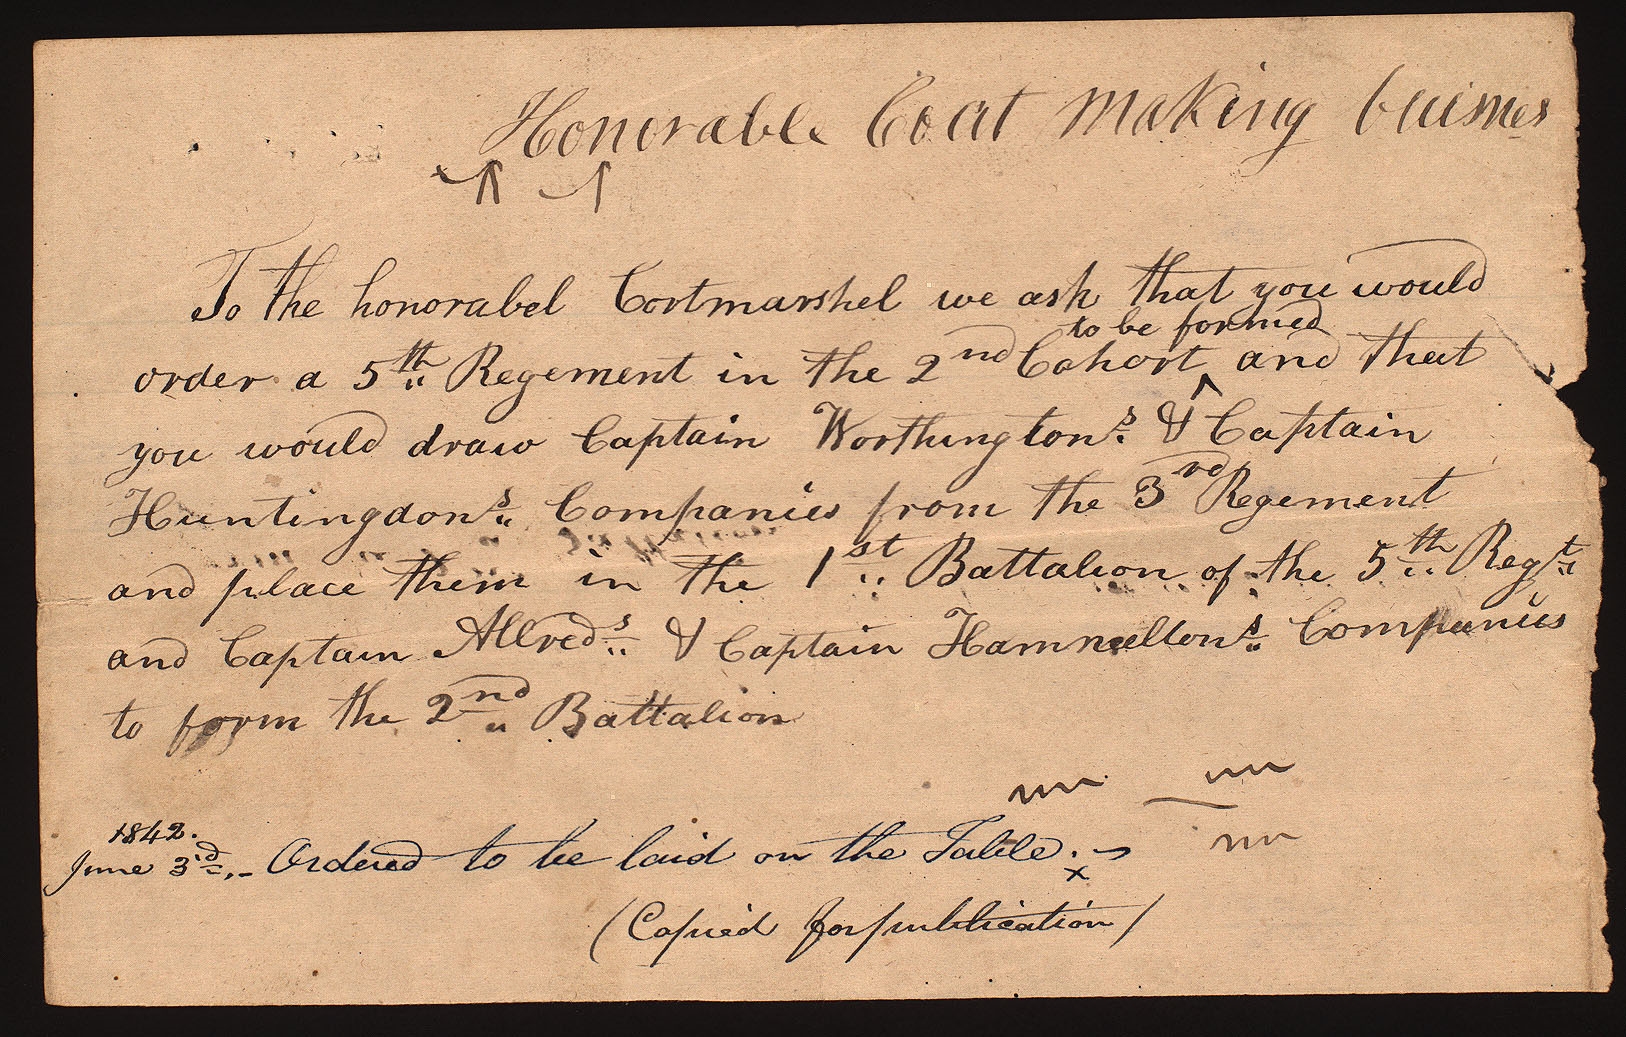 Honorable Coat Making buisnes
To the honorabel Cortmarshel we ask that you would
to be formed
order a 5th Regement in the 2nd Cohort ^ and that
you would draw Captain Worthingtons. & Captain
Huntingdons. Companies from the 3rd Regement
and place them in the 1st Battalion of the 5th Regt.
and Captain Allreds. & Captain Hamneltons. Companies
to form the 2nd Battalion
1842.
June 3d.- Ordered to be laid on the Table.
x
(Copied for publication)